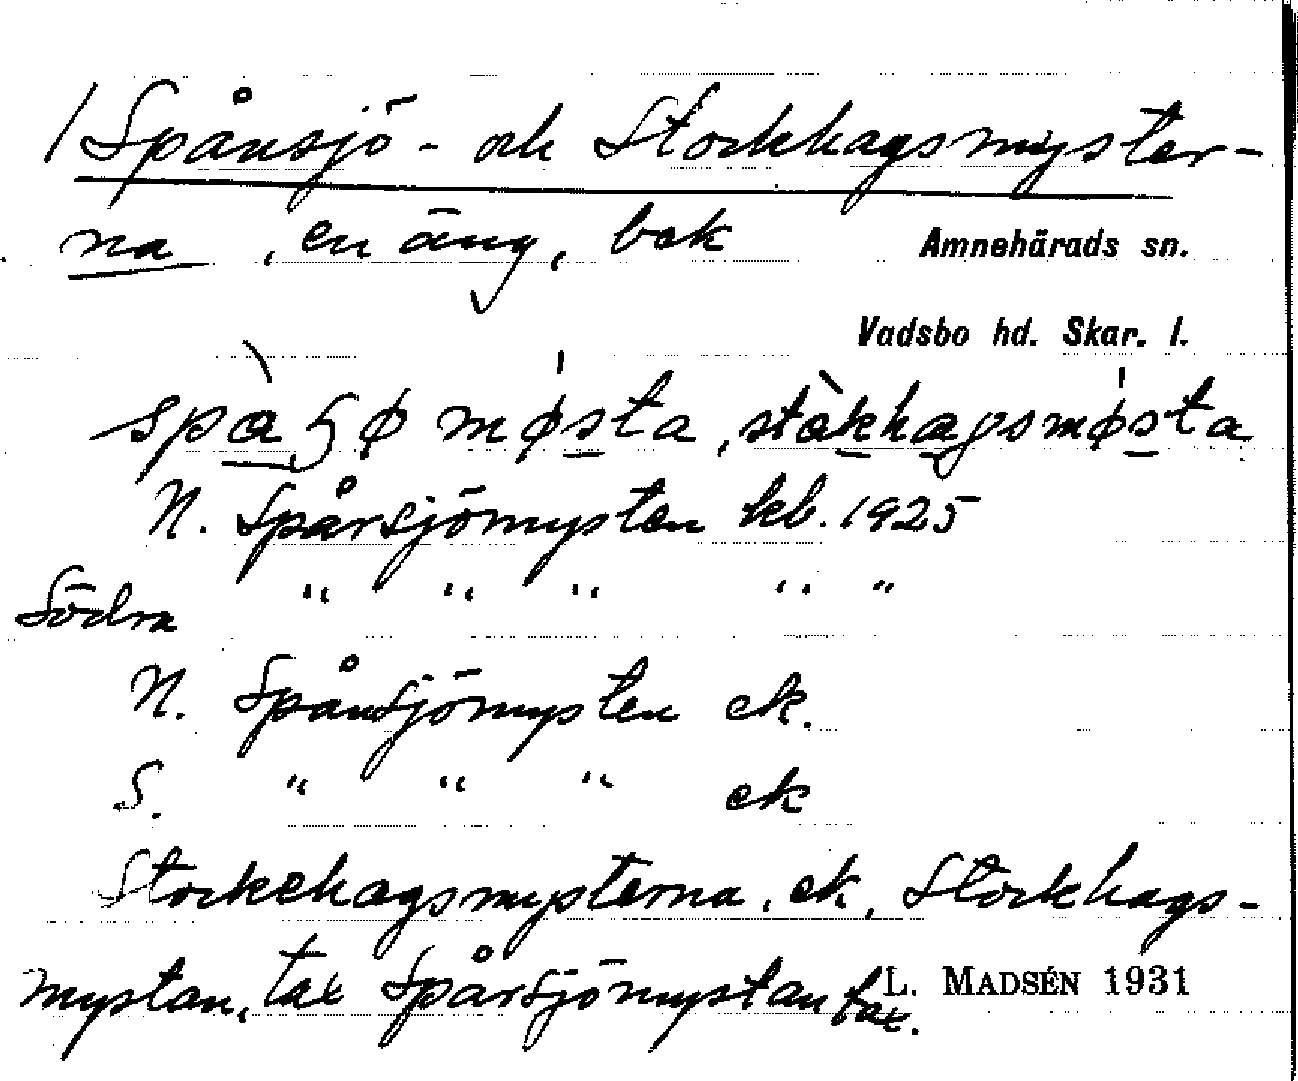 / Spånsjö- och Stockhagsmyster-
na, en äng, bek
Amnehärads sn.
Vadsbo hd. Skar. l.
N. Spårsjömysten kb. 1925
Södra " " " " "
N. Spånsjömysten ek.
S. " " " ek
Stockehagsmysterna, ek, Stockhags-
mystan, tax Spårsjömystan tax.
L. MADSÉN 1931